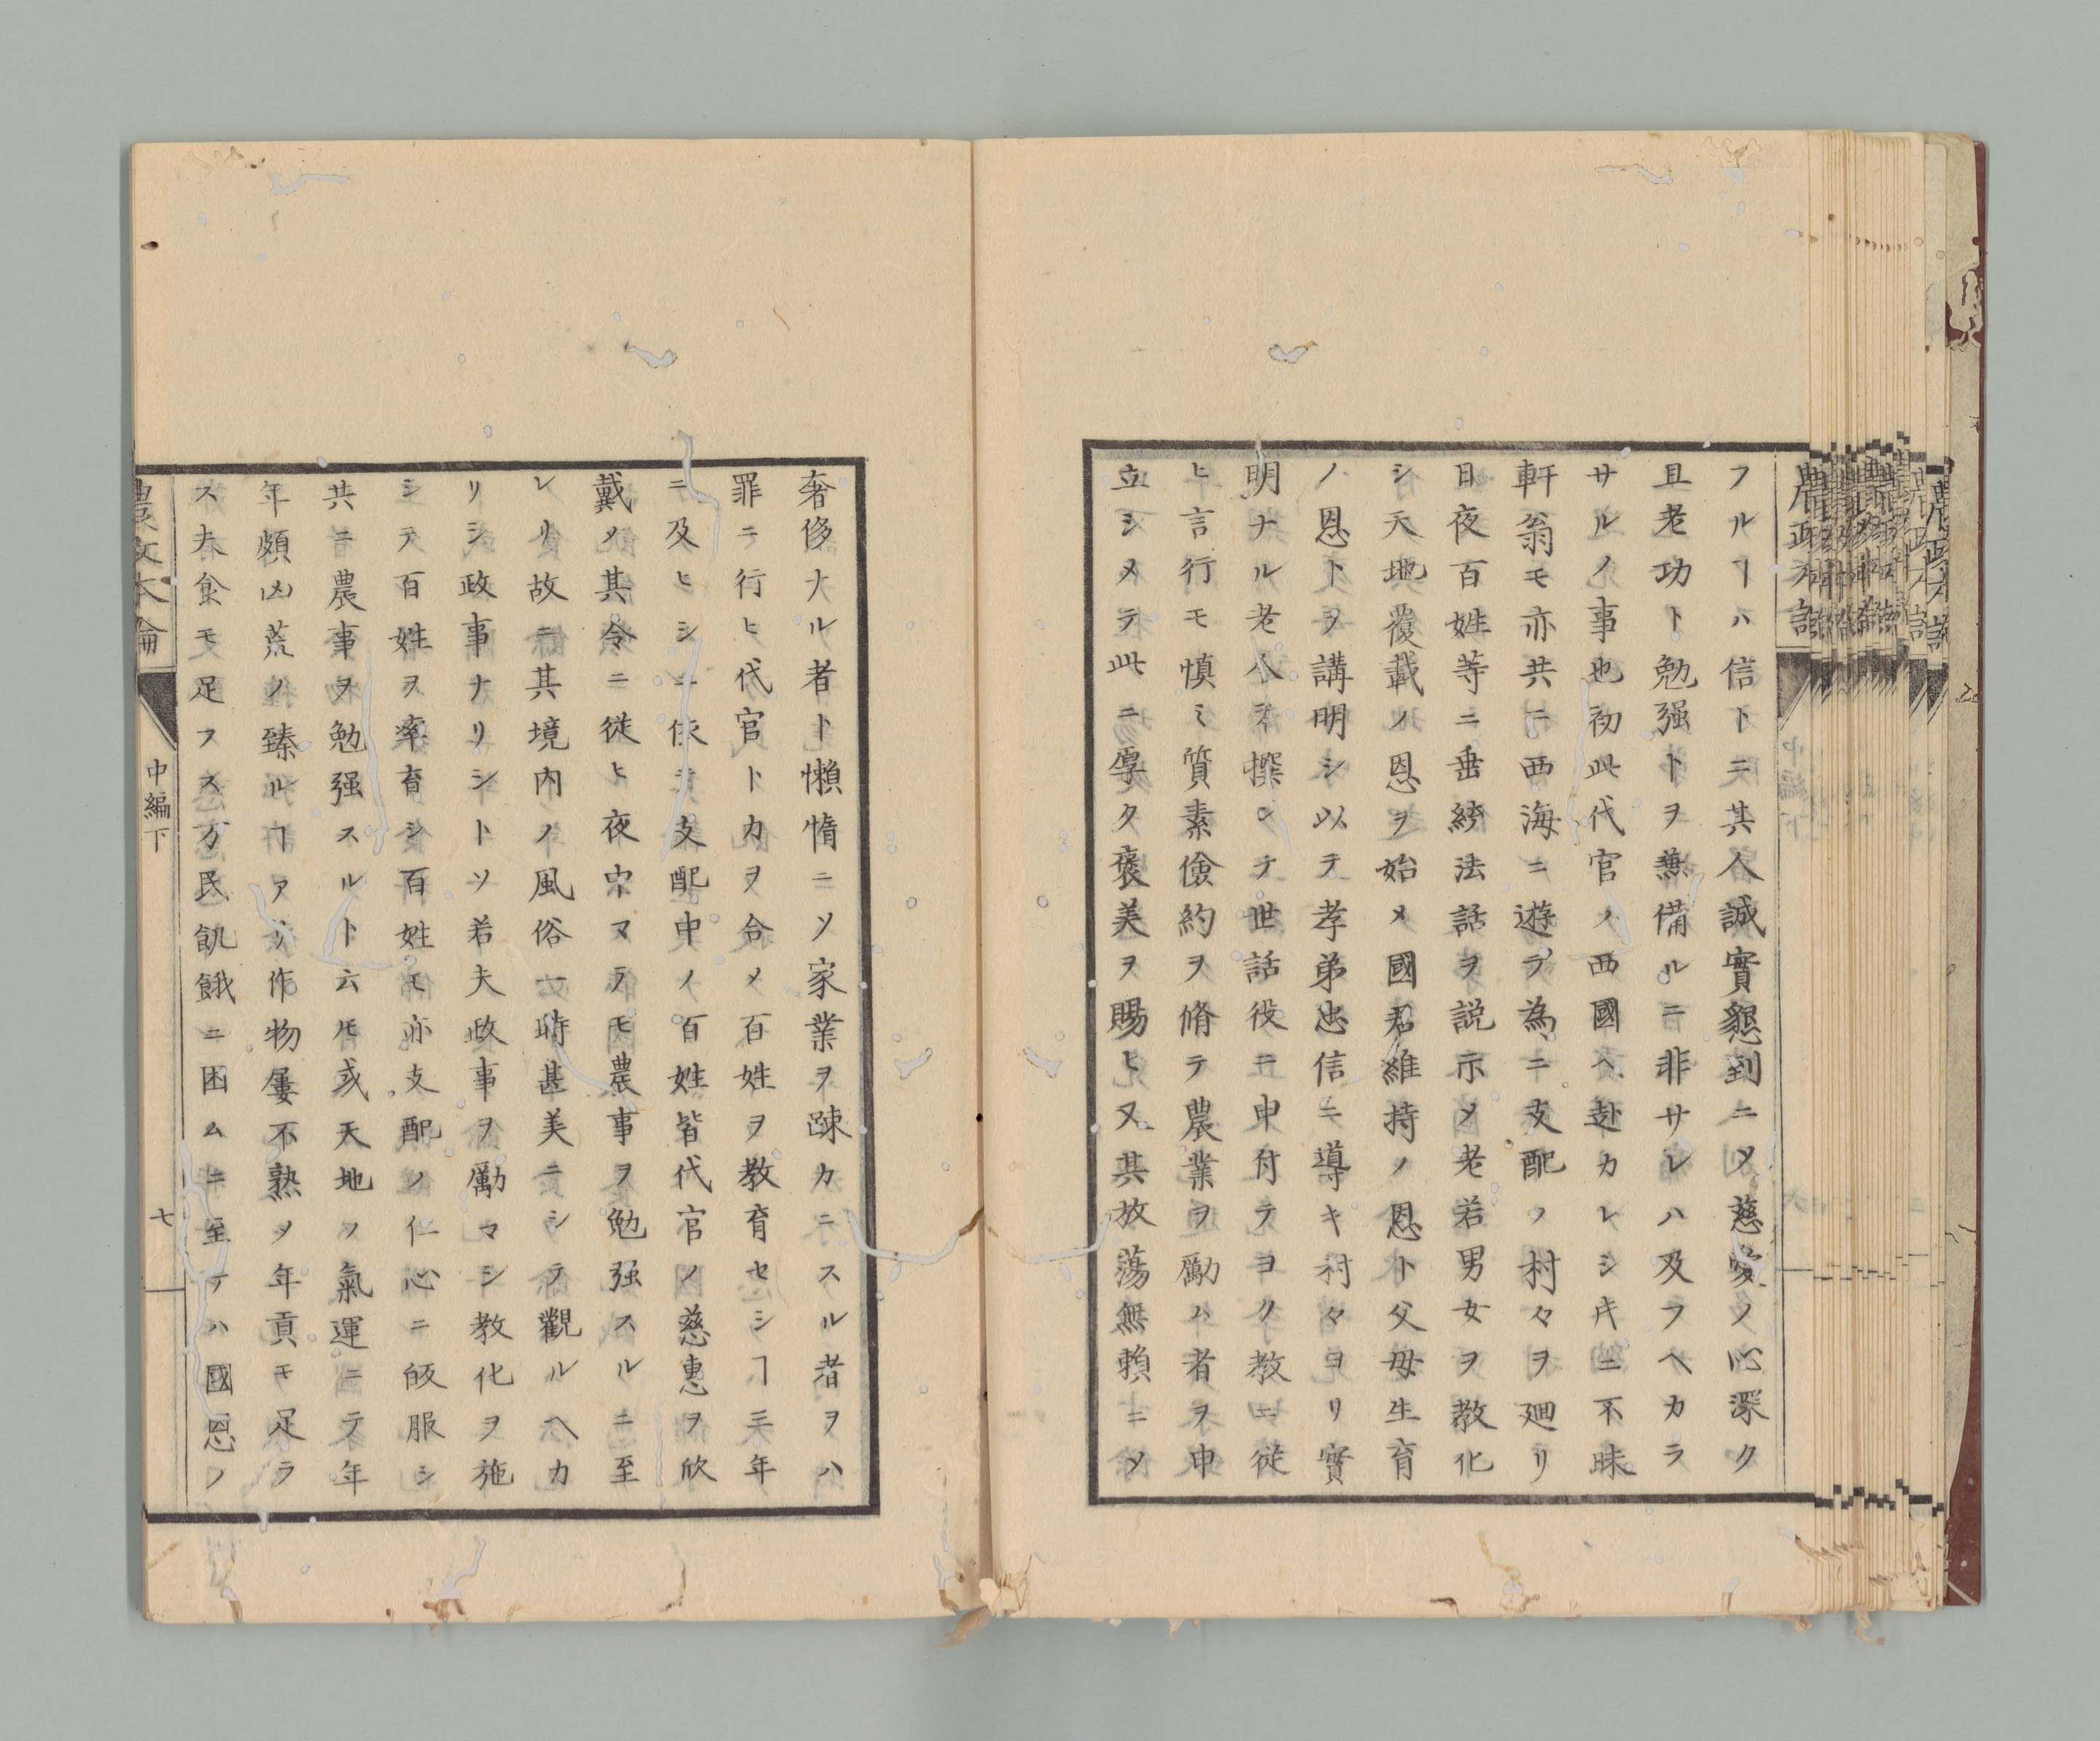 フルヿハ信ト二其人誠實懇到ニメ慈愛ノ心深ク
且老功ト勉强トヲ兼備ルニ非サレハ及フヘカラ
サルノ事也初此代官ノ西國ヘ赴カレシ片ニ不昧
軒翁モ亦共ニ西海ニ遊ヲ為ニ支配ノ村々ヲ廻リ
日夜百姓等ニ垂綍法話ヲ説示メ老若男女ヲ教化
シ天地覆載ノ恩ヲ始メ國君維持ノ恩ト父母生育
ノ恩トヲ講明シ以テ孝弟忠信ニ導キ村々ヨリ實
明ナル老人ヲ撰ンテ世話役ニ申付テヨク教ニ従
ヒ言行モ慎ミ質素儉約ヲ脩テ農業ヲ勵ム者ヲ申
立シメテ此ニ厚ク褒美ヲ賜ヒ又其放蕩無賴ニメ
奢侈大ル者ト懶惰ニメ家業ヲ踈カニスル者ヲハ
罪ニ行ヒ代官ト力ヲ合メ百姓ヲ教育セシヿ三年
ニ及ヒシニ依テ支配中ノ百姓皆代官ノ慈惠ヲ欣
戴メ其令ニ従ヒ夜中マテモ農事ヲ勉强スルニ至
レリ故ニ其境内ノ風俗一時甚美ニシテ觀ルヘカ
リシ政事ナリシトソ若夫政事ヲ勵マシ教化ヲ施
シテ百姓ヲ率育シ百姓モ亦支配ノ仁心ニ皈服シ
共ニ農事ヲ勉强スルト云𪜈或天地ノ氣運ニテ年
年頻凶荒ノ臻ルヿアリ作物屢不熟メ年貢モ足ラ
ス夫食モ足フス万民飢餓ニ困ムニ至テハ國恩ノ
農政本論
中編下
七